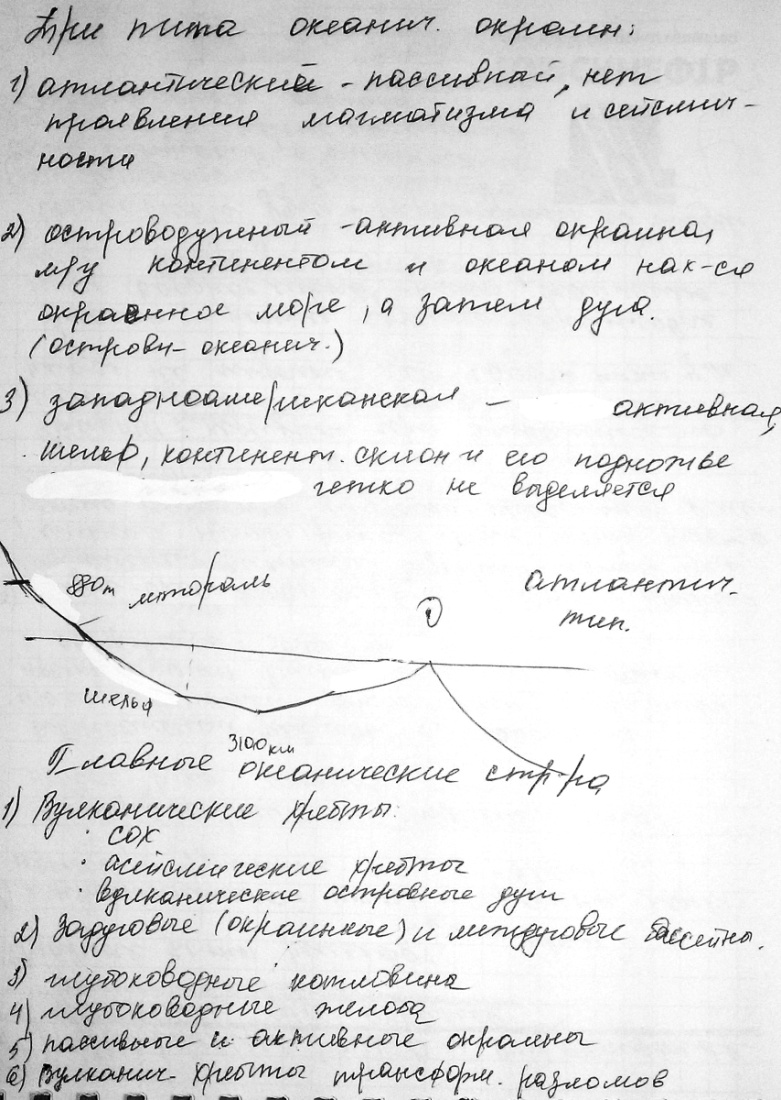 Три типа океанич. окраин:
1) атлантический - пассивный, нет
проявления магматизма и сейсмич-
ности
2) островодужный - активная окраина,
м/у континентом и океаном нах-ся
окраинное море, а затем дуга.
(острови- океанич.)
3) западноамериканская - активная,
шельф, континент. склон и его подножье
четко не выделяется
литораль
атлантич.
тип.
шельф
3100 км
Главные океанические стр-ра
1) Вулканические хребты:
· СОХ
· асейсмические хребты
· вулканические островные дуги
2) Задуговые (окраинные) и междуговые бассейны.
3) глубоководные котловина
4) глубоководные желоба
5) пассивные и активные окраины
6) Вулканич. хребты трансформ. разломов